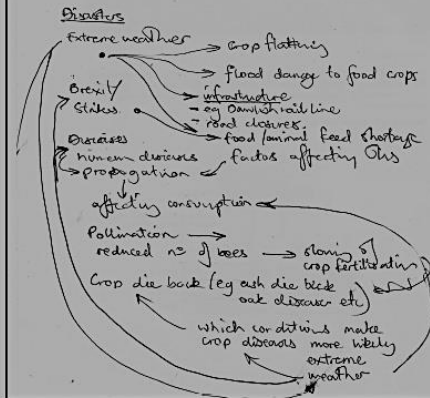 Disasters
Extreme weather
Crop flattening
flood damage to food crops
infrastructure
- eg Dawlish rail line
- road closures
Brexit /
Strikes
food / animal feed shortage
Diseases
human diseases
propagation
factors affecting this
affecting consumption
Pollination
reduced no of bees
slowing of
crop fertilisation
Crop die back (eg ash die back
oak disease etc)
which conditions make
crop diseases more likely
extreme
weather